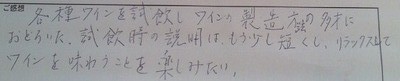 ご感想
各種ワインを試飲し ワインの製造方法の多才に
おどろいた。試飲時の説明は、もう少し短くし、リラックスして
ワインを味わうことを楽しみたい。